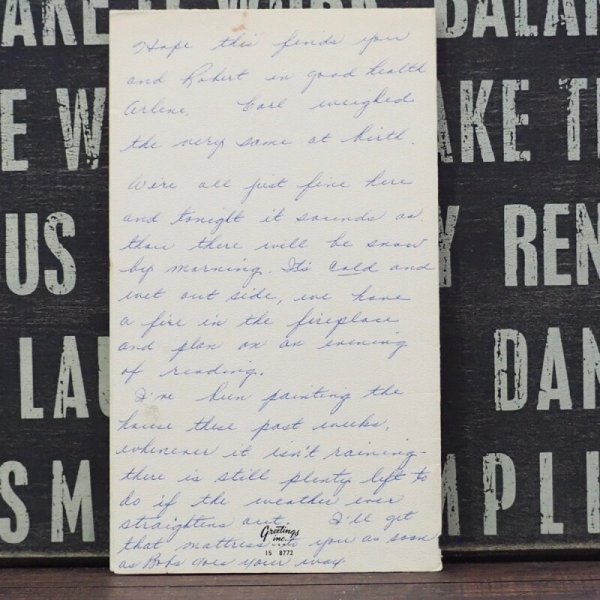 Hope this finds you
and Robert in good health
Arlene, Earl weighed
the very same at birth.
We're all just fine here
and tonight it sounds as
thou there will be snow
by morning. It's cold and
wet out side, we have
a fire in the fireplace
and plan on an evening
of reading.
I've been painting the
house these past weeks,
whenever it isn't raining-
there is still plenty left to
do if the weather ever
straightens out. I'll get
that mattress to you as soon
as Bob goes your way
Greetings
inc.
15 8772
AKE IT WORK BALAN
E W AKE TI
US Y REN
LAU DAN
SM MPLI